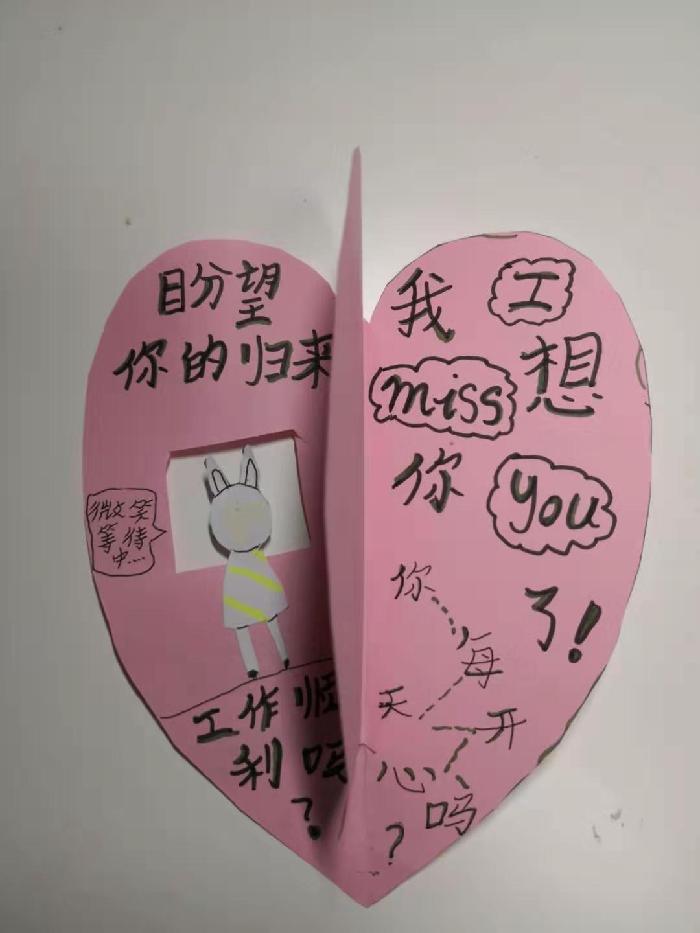 盼望
你的归来
微笑
等待
中...
工作顺
利吗
?
我 I
miss 想
你 you
了!
你
每
天 开
心 吗
?